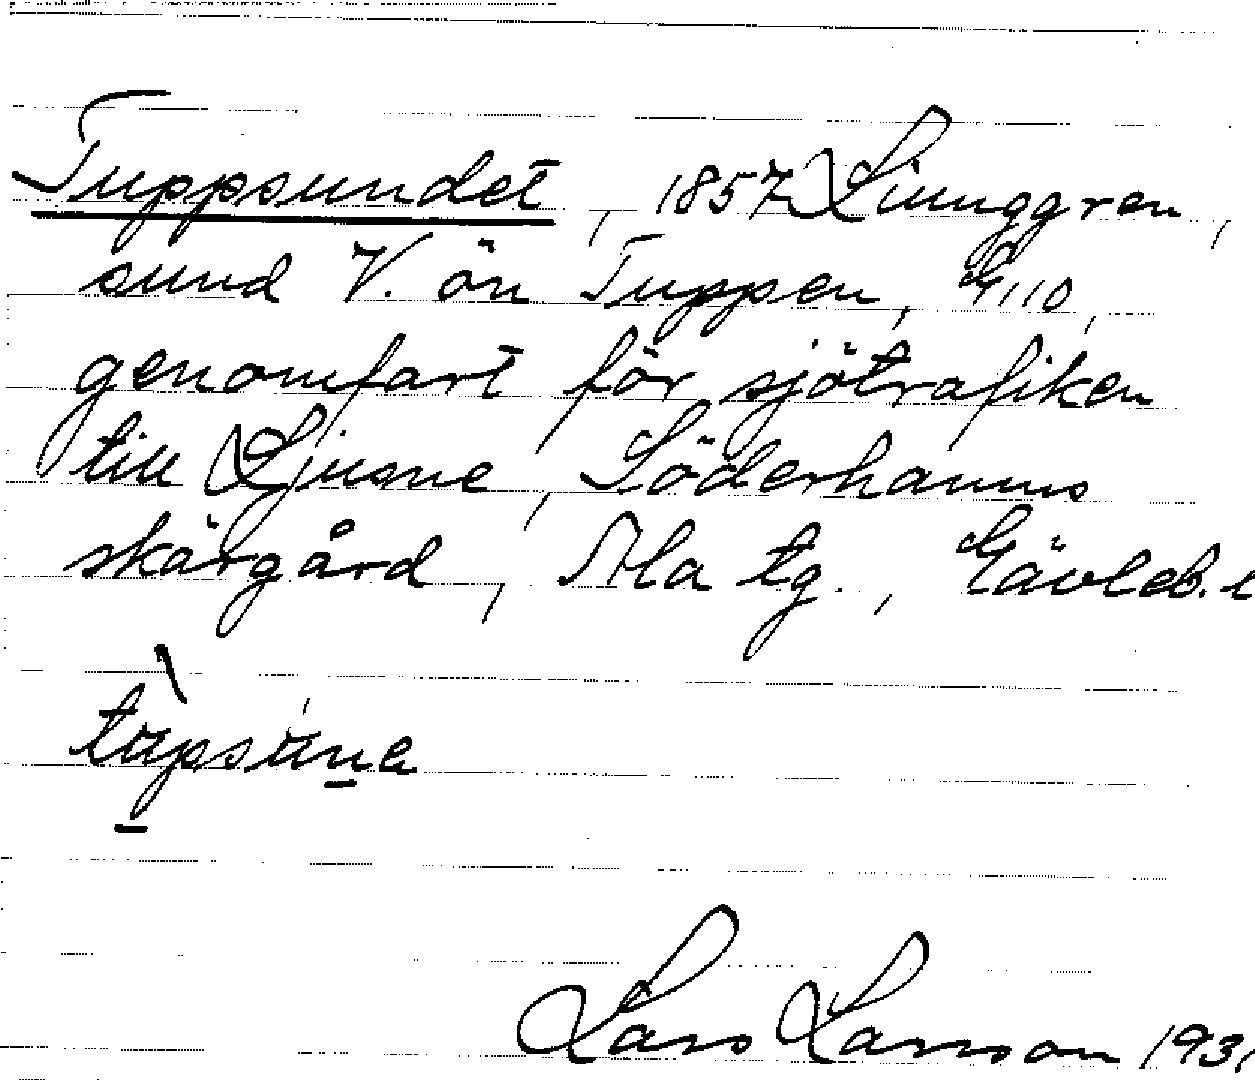 Tuppsundet, 1857 Ljunggren,
sund V. ön Tuppen, G110,
genomfart för sjötrafiken
till Ljusne, Söderhamns
skärgård, Ala tg., Gävleb. l
Lars Larsson 193